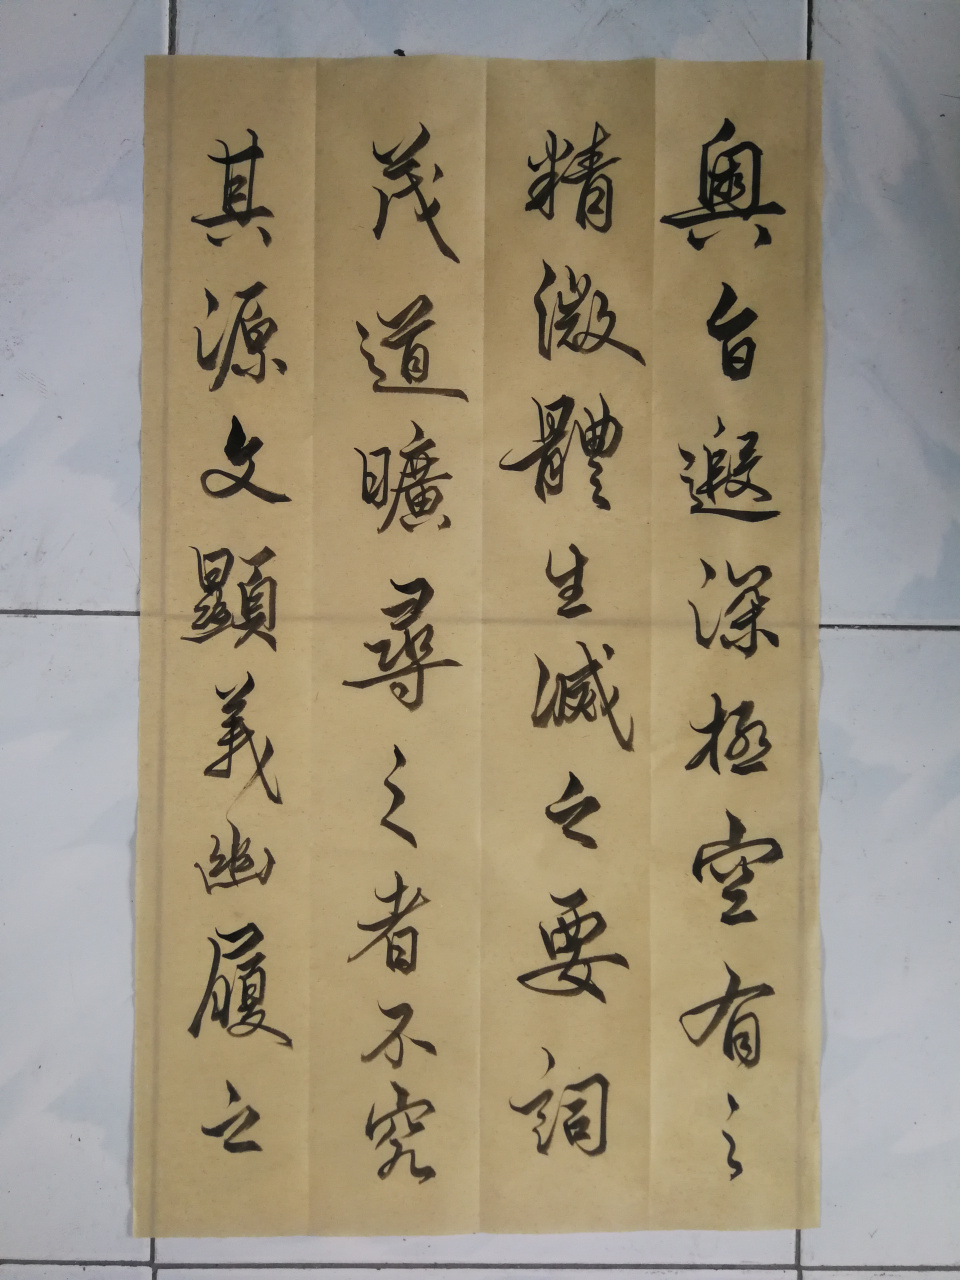 奧旨遐深極空有之
精微體生滅之要詞
茂道曠尋之者不究
其源文顯義幽履之